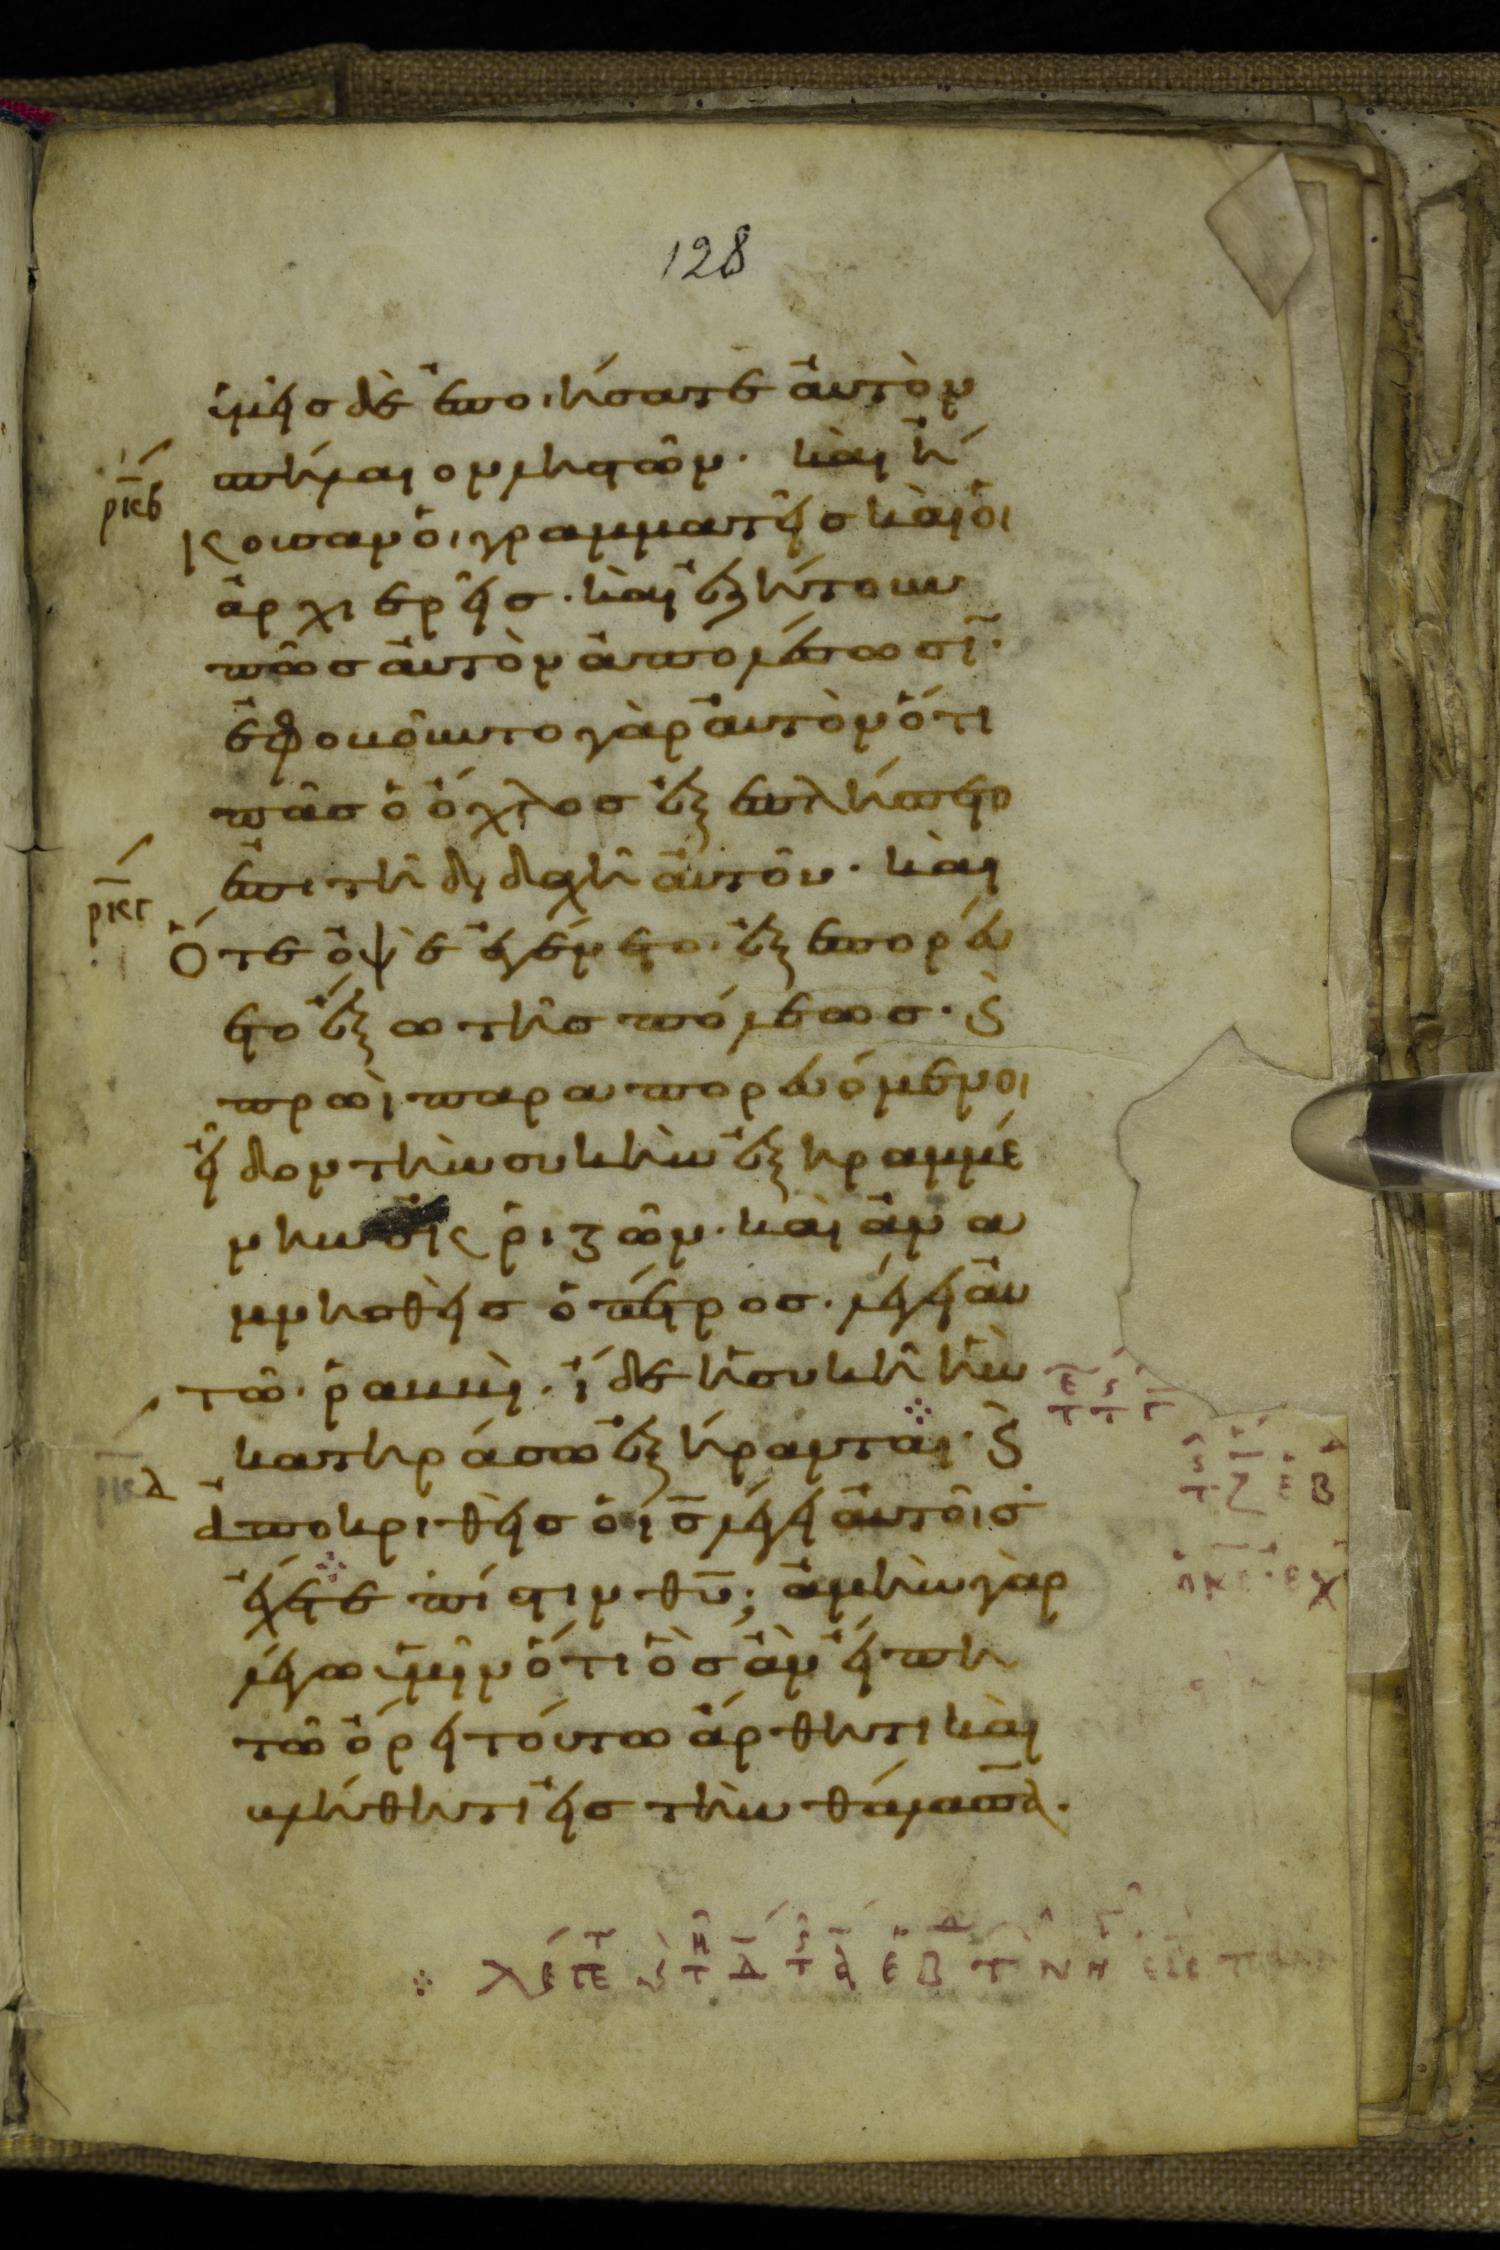 128
ὑμεῖς δὲ ἐποιήσατε ἀυτὸν
σπήλαιον ληστῶν· καὶ ἤ
ρκβ
κουσαν ὁι γραμματεῖς καὶ ὁι
ἀρχιερεῖς· καὶ ἐζήτουν
πῶς ἀυτὸν ἀπολέσωσῐ·
ἐφοβοῦντο γὰρ ἀυτὸν ὅτι
πᾶς ὁ ὄχλος ἐξεπλήσσετο
ἐπι τῆ διδαχῆ ἀυτοῦ· καὶ
ρκγ
ὅτε ὀψὲ ἐγένετο· ἐξεπορεύ
ετο ἔξω τῆς πόλεως· ϗ
πρωῒ παραπορευόμενοι
εἶδον τὴν συκὴν ἐξηραμμέ
νην ἐκ ῥιζῶν· καὶ ἀνα
μνησθεὶς ὁ πέτρος· λέγει ἀυ
τῶ· ῥαββὶ· ἴδε ἡ συκῆ ἣν
κατηράσω ἐξήρανται· ϗ
ρκδ
ἀποκριθεὶς ὁ ις λέγει ἀυτοῖς
ἔχετε πίστιν θυ; ἀμὴν γὰρ
λέγω ὑμῖν ὅτι ὃς ἂν εἴπη
τῶ ὄρει τούτω ἄρθητι καὶ
βλήθητι εἰς τὴν θάλασσαν·